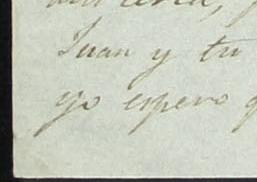 Juan y tu
yo espero q